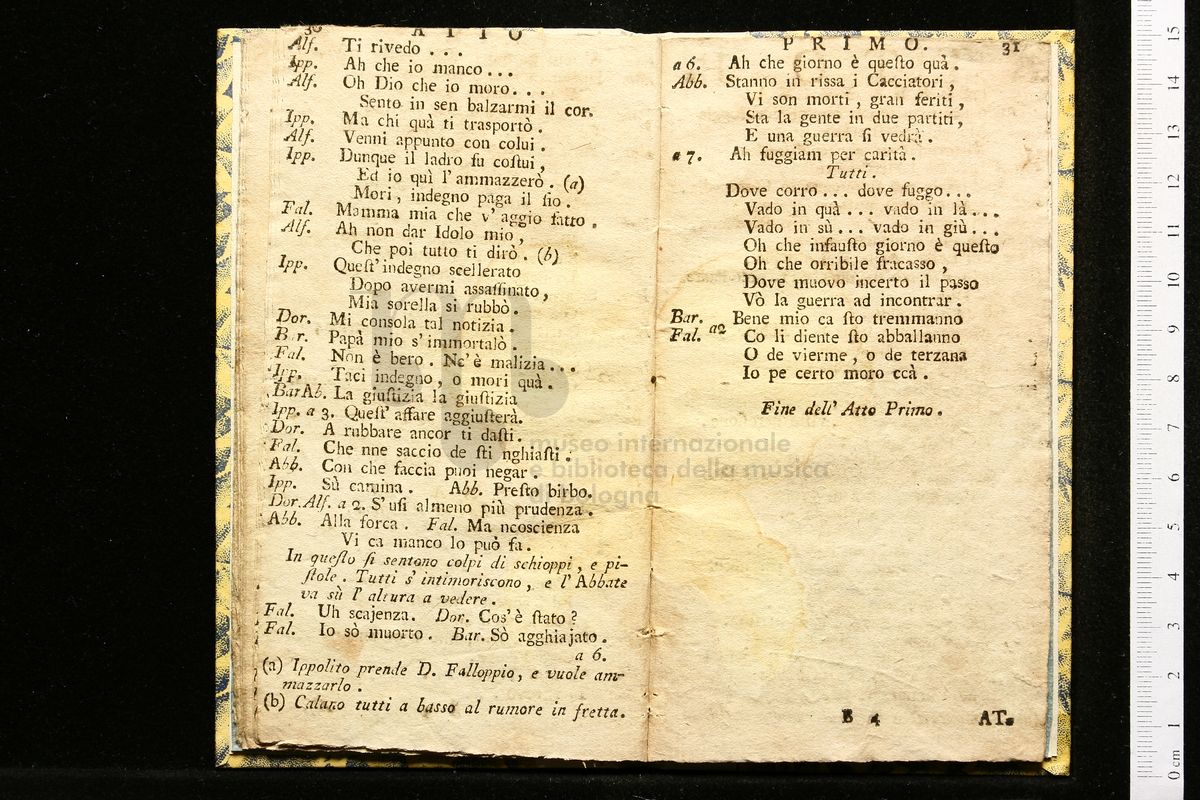 30 ATTO
Alf. Ti rivedo . . .
Ipp. Ah che io manco . . .
Alf. Oh Dio che io moro . . .
Sento in sen balzarmi il cor.
Ipp. Ma chi quà ti trasportò .
Alf. Venni appunto con colui .
Ipp. Dunque il ladro fu coſtui ,
Ed io quì l'ammazzerò . (a)
Mori , indegno paga il fio .
Fal. Mamma mia che v' aggio fatto .
Alf. Ah non dar Idolo mio ,
Che poi tutto ti dirò . (b)
Ipp. Queſt' indegno scellerato
Dopo avermi aſſaſſinato ,
Mia sorella si rubbò .
Dor. Mi consola tal notizia .
Bar. Papà mio s' immortalò .
Fal. Non è bero . Ne' è malizia . . .
Ipp. Taci indegno , o mori quà .
Bar Ab. La giuſtizia la giuſtizia
Ipp. a 3. Queſt' affare aggiuſterà.
Dor. A rubbare ancor ti daſti .
Fal. Che nne saccio de ſti nghiaſti .
Abb. Con che faccia puoi negar .
Ipp. Sù camina . Abb. Preſto birbo.
Dor. Alf. a 2. S' uſi almeno più prudenza .
Abb. Alla forca . Fal. Ma ncoscienza
Vi ca manco lo può fa .
In queſto ſi sentono colpi di schioppi , e pi-
ſtole . Tutti s' intimoriscono , e l' Abbate
va sù l' altura a vedere .
Fal. Uh scajenza . Dor. Cos' è ſtato ?
Fal. Io sò muorto . Bar. Sò agghiajato .
a 6.
(a) Ippolito prende D. Falloppio , e vuole am-
mazzarlo .
(b) Calano tutti a basso al rumore in fretta .
PRIMO. 31
a 6. Ah che giorno è queſto quà .
Abb. Stanno in rissa i Cacciatori ,
Vi son morti , gran feriti ,
Sta la gente in due partiti ,
E una guerra ſi vedrà .
a 7. Ah fuggiam per carità .
Tutti .
Dove corro . . . dove fuggo . . .
Vado in quà . . . vado in là . . .
Vado in sù . . . vado in giù . . .
Oh che infauſto giorno è queſto
Oh che orribile fracasso ,
Dove muovo incerto il passo
Vò la guerra ad incontrar .
Bar. Bene mio ca ſto tremmanno
Fal. a2 Co li diente ſto abballanno
O de vierme , o de terzana
Io pe certo moro ccà .
Fine dell' Atto Primo .
B 4 AT.
museo internazionale
e biblioteca della musica
di bologna
0 cm 1 2 3 4 5 6 7 8 9 10 11 12 13 14 15